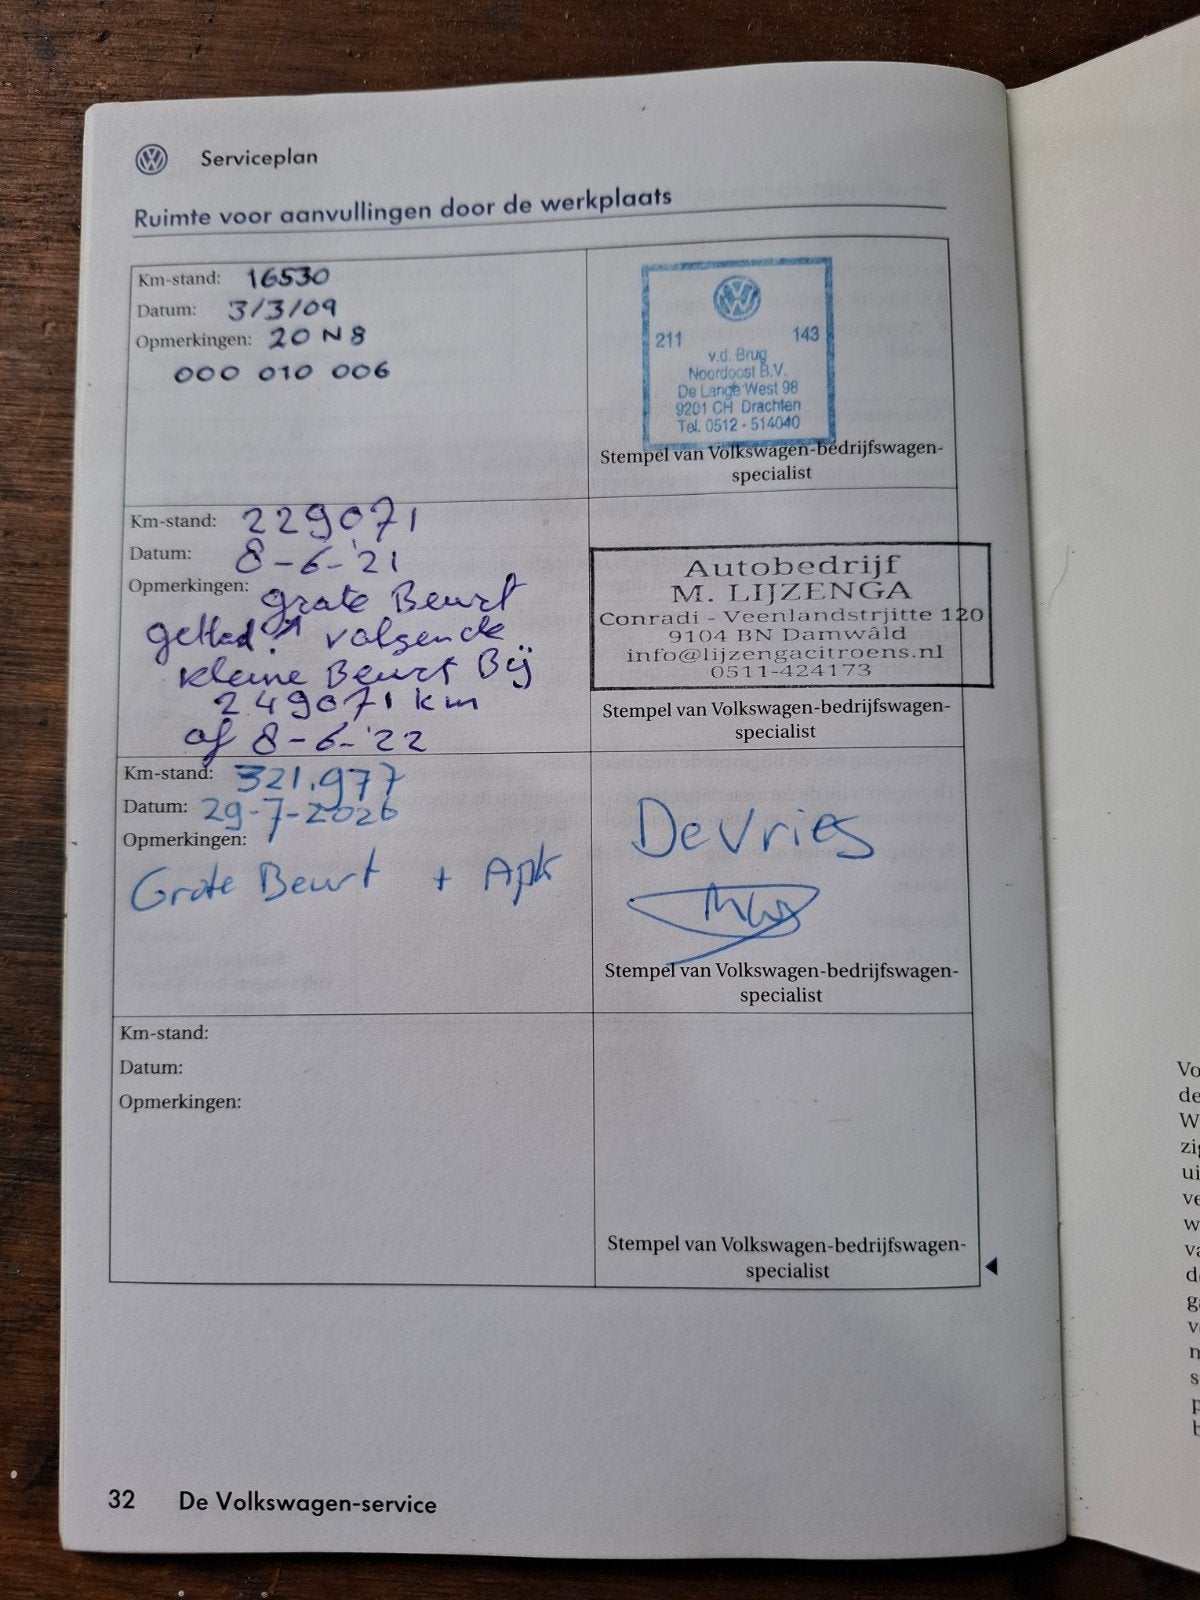 Serviceplan
Ruimte voor aanvullingen door de werkplaats
Km-stand: 16530
Datum: 3/3/09
Opmerkingen: 20 N 8
000 010 006
211 143
v.d. Brug
Noordoost B.V.
De Lange West 98
9201 CH Drachten
Tel. 0512 - 514040
Stempel van Volkswagen-bedrijfswagen-
specialist
Km-stand: 229071
Datum: 8-6-'21
Opmerkingen: grote Beurt
gehad! volgende
kleine Beurt Bij
249071 km
of 8-6-'22
Autobedrijf
M. LIJZENGA
Conradi - Veenlandstrjitte 120
9104 BN Damwâld
info@lijzengacitroens.nl
0511-424173
Stempel van Volkswagen-bedrijfswagen-
specialist
Km-stand: 321.977
Datum: 29-7-2026
Opmerkingen:
Grote Beurt + Apk
De Vries
Stempel van Volkswagen-bedrijfswagen-
specialist
Km-stand:
Datum:
Opmerkingen:
Stempel van Volkswagen-bedrijfswagen-
specialist
32 De Volkswagen-service